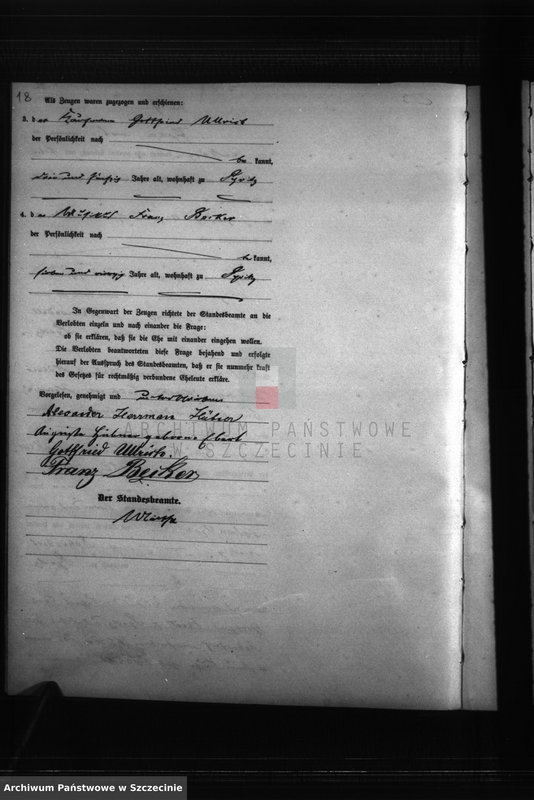 18
Als Zeugen waren zugezogen und erschienen:
3. der Kaufmann Gottfried Ullrich
der Persönlichkeit nach
be kannt,
und fünfzig Jahre alt, wohnhaft zu Pyritz
4. der Franz Becker
der Persönlichkeit nach
be kannt,
sieben und vierzig Jahre alt, wohnhaft zu Pyritz
In Gegenwart der Zeugen richtete der Standesbeamte an die
Verlobten einzeln und nach einander die Frage:
ob sie erklären, daß sie die Ehe mit einander eingehen wollen.
Die Verlobten beantworteten diese Frage bejahend und erfolgte
hierauf der Ausspruch des Standesbeamten, daß er sie nunmehr kraft
des Gesetzes für rechtmäßig verbundene Eheleute erkläre.
Vorgelesen, genehmigt und unterschrieben
Alexander Herrman Hübner
Auguste Hübner geborene Ebert
Gottfried Ullrich.
Franz Becker
Der Standesbeamte.
ARCHIWUM PAŃSTWOWE
W SZCZECINIE
Archiwum Państwowe w Szczecinie